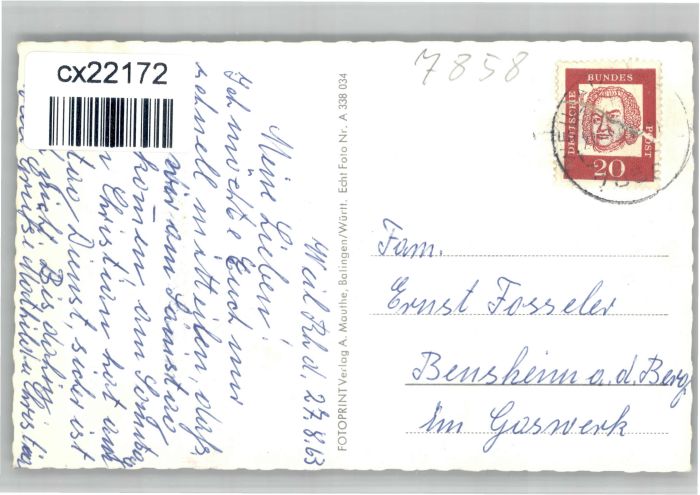 cx22172
7858
DEUTSCHE
BUNDES
POST
20
FOTOPRINT Verlag A. Mauthe, Balingen/Württ. Echt Foto Nr. A 338 034
Weil Rh. d. 27.8.63
Meine Lieben!
Ich möchte Euch nur
schnell mitteilen, daß
wir am Samstag
kom̄en, am Sonntag
Christian hat am
tag Dienst, sicher ist
Bis dahin
Grüße Mathilde Christian
Fam.
Ernst Fosseler
Bensheim a.d. Berg
Im Gaswerk